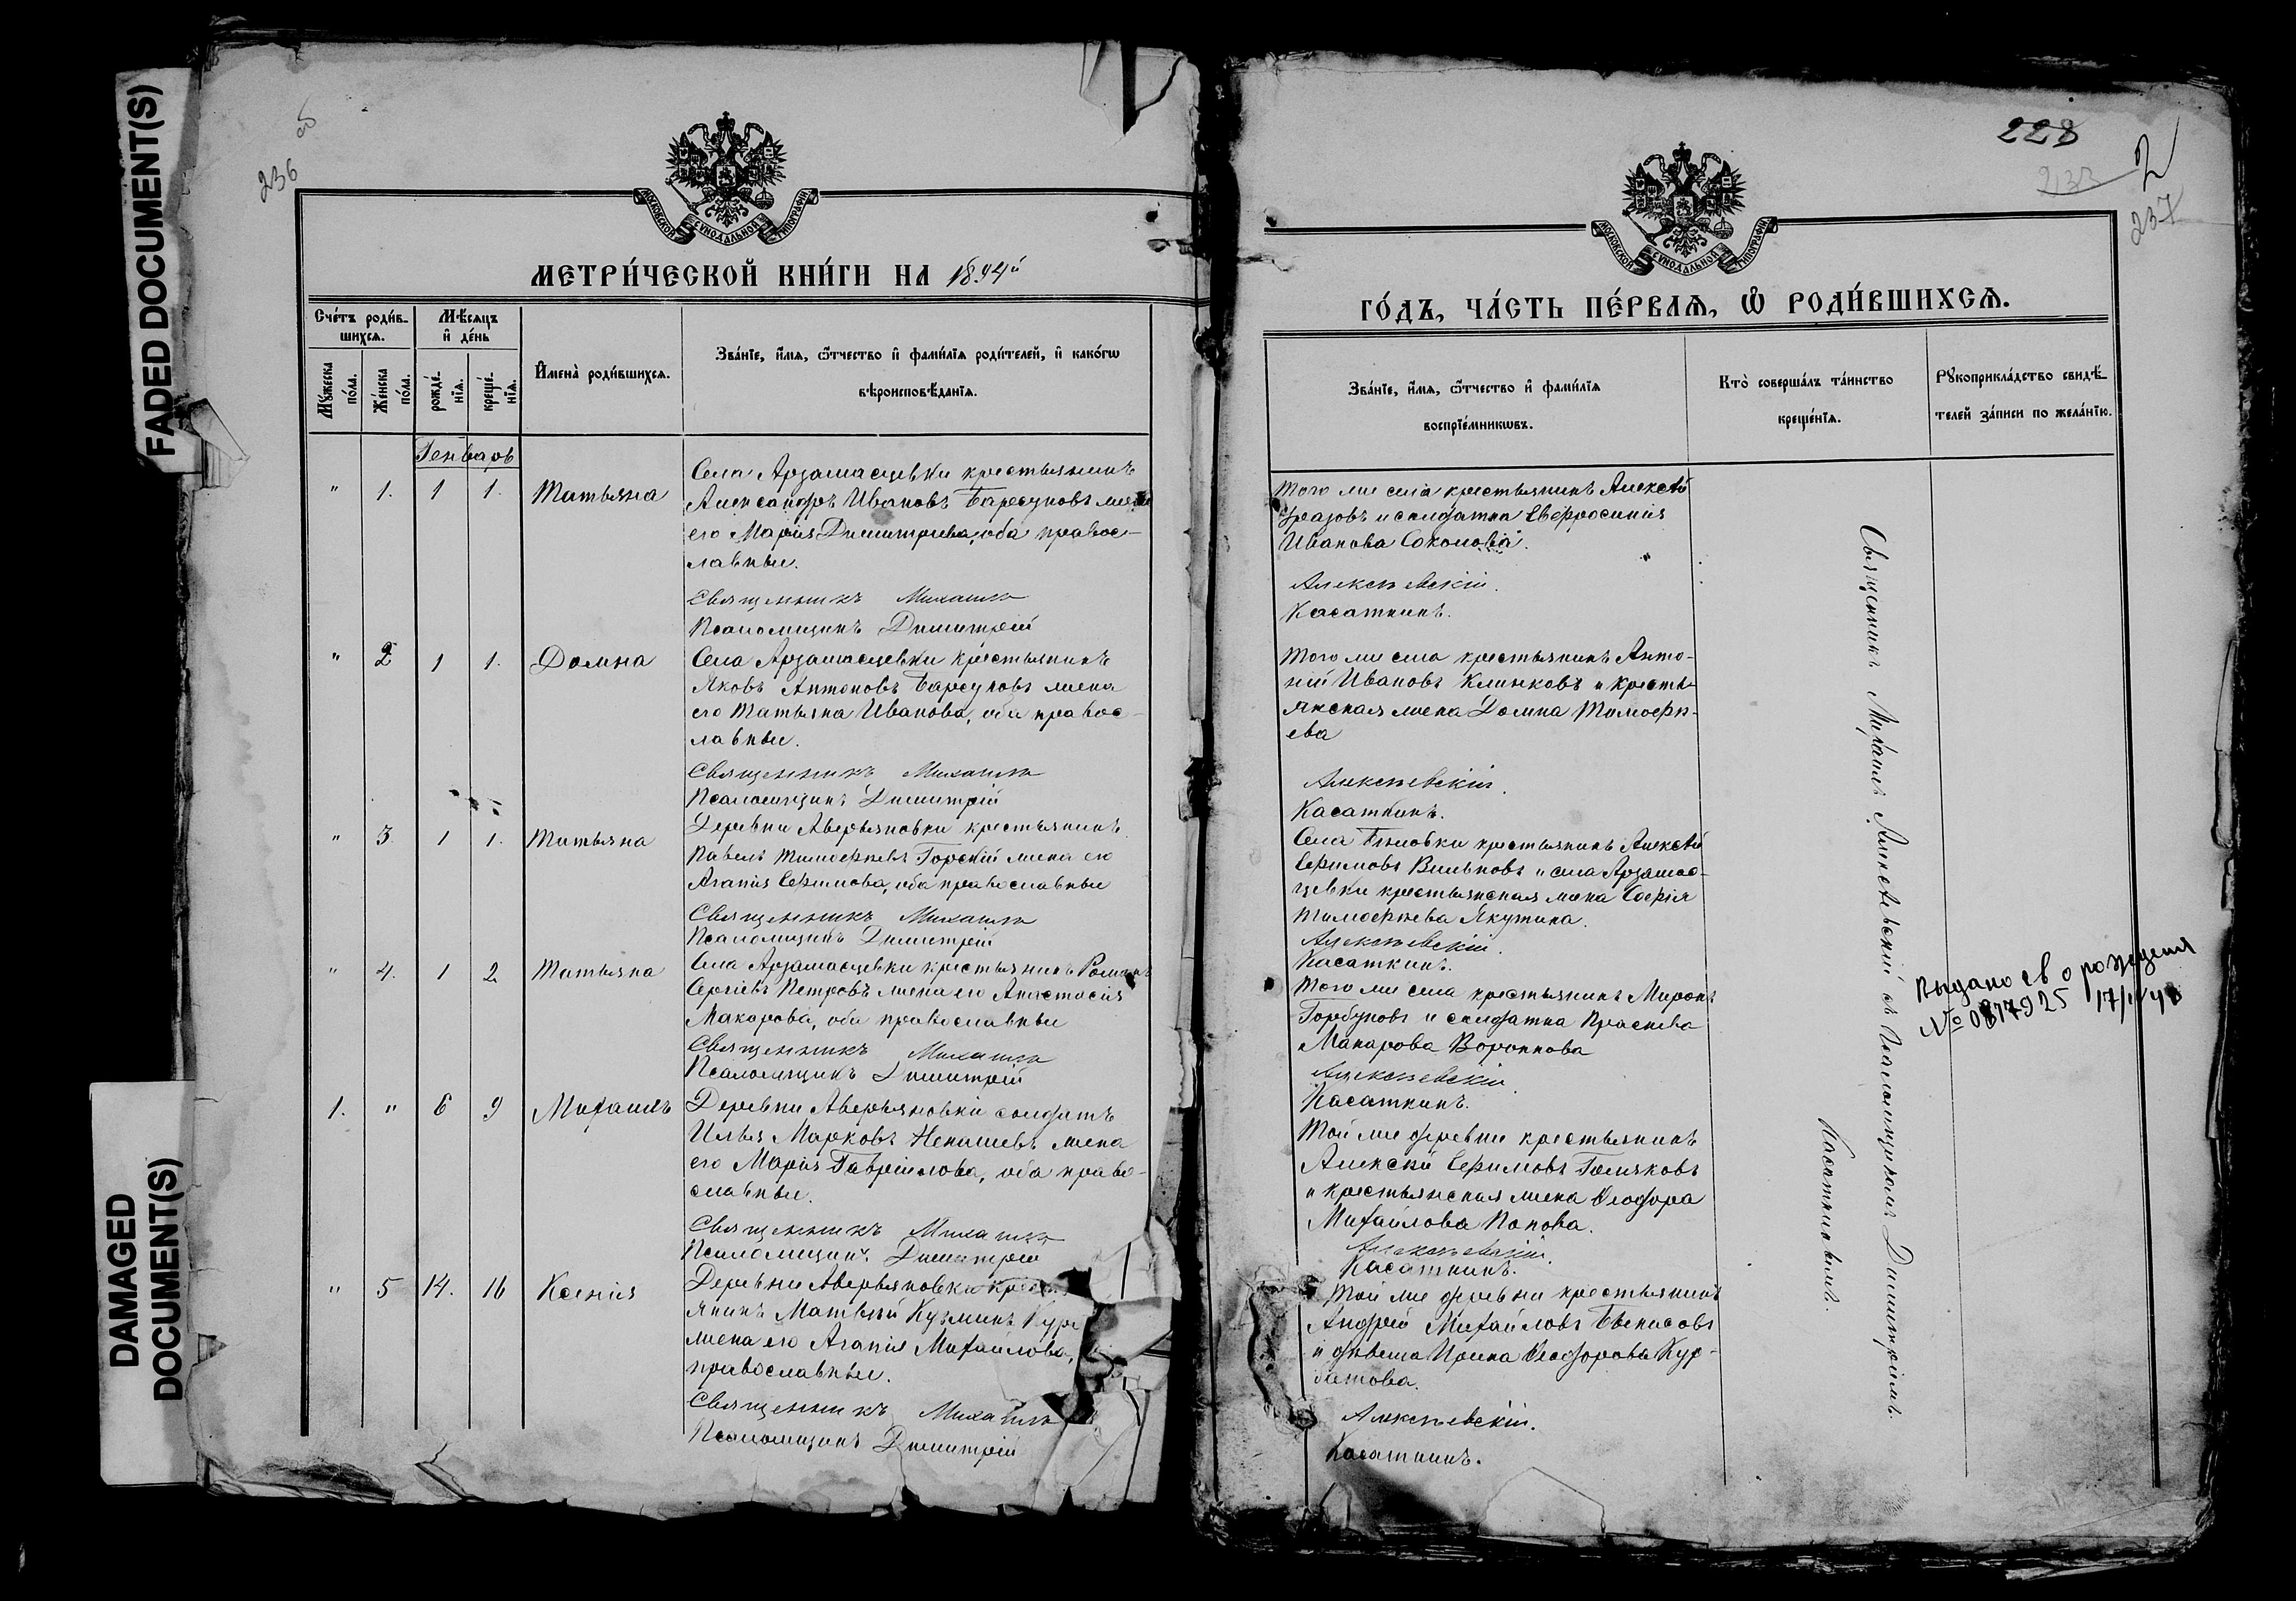 FADED DOCUMENT(S)
DAMAGED
DOCUMENT(S)
236 об
МОСКОВСКОЙ СѴНОДАЛЬНОЙ ТИПОГРАФІИ
МЕТРИ́ЧЕСКОЙ КНИ́ГИ НА 1894й
Сче́тъ роди́в-
шихсѧ.
Мѣ́сѧцъ
и҆ де́нь
Мꙋ́жеска
по́ла.
Же́нска
по́ла.
рожде́-
нїѧ.
креще́-
нїѧ.
И҆мена̀ роди́вшихсѧ.
Зва́нїе, и҆́мѧ, ѻ҆́тчество и҆ фами́лїѧ роди́телей, и҆ како́гѡ
вѣроисповѣ́данїѧ.
Генваръ
" 1. 1 1. Татьяна
Села Арзамасцевки крестьянинъ
Александръ Ивановъ Барсуковъ жена
его Марія Димитріева, оба правос-
лавные.
Священникъ Михаилъ
Псаломщикъ Димитрій
" 2 1 1. Домна
Села Арзамасцевки крестьянинъ
Яковъ Антоновъ Барсуковъ жена
его Татьяна Иванова, оба правос-
лавные.
Священникъ Михаилъ
Псаломщикъ Димитрій
" 3. 1 1. Татьяна
Деревни Аверьяновки крестьянинъ
Павелъ Тимофеевъ Горскій жена его
Агапія Ефимова, оба православные
Священникъ Михаилъ
Псаломщикъ Димитрій
" 4. 1 2 Татьяна
Села Арзамасцевки крестьянинъ Романъ
Сергіевъ Петровъ жена его Анастасія
Макарова, оба православные
Священникъ Михаилъ
Псаломщикъ Димитрій
1. " 6 9 Михаилъ
Деревни Аверьяновки солдатъ
Илья Марковъ Ненашевъ жена
его Марія Гавріилова, оба право-
славные.
Священникъ Михаилъ
Псаломщикъ Димитрій
" 5 14. 16 Ксенія
Деревни Аверьяновки крес
янинъ Матвей Кузминъ Кур
жена его Агапія Михайлова,
православные.
Священникъ Михаилъ
Псаломщикъ Димитрій
228
2
233
237
МОСКОВСКОЙ СѴНОДАЛЬНОЙ ТИПОГРАФІИ
ГО́ДЪ, ЧА́СТЬ ПЕ́РВАѦ, Ѽ РОДИ́ВШИХСѦ.
Зва́нїе, и҆́мѧ, ѻ҆́тчество и҆ фами́лїѧ
воспрїе́мникѡвъ.
Кто̀ соверша́лъ та́инство
креще́нїѧ.
Рꙋкоприкла́дство свидѣ́-
телей за́писи по жела́нїю.
Того же села крестьянинъ Алексѣй
Уразовъ и солдатка Евфросинія
Иванова Соколова.
Алексѣевскій.
Касаткинъ.
Того же села крестьянинъ Анто-
ній Ивановъ Клинковъ и кресть-
янская жена Домна Тимофе-
ева
Алексѣевскій.
Касаткинъ.
Села крестьянинъ Алексѣй
Ефимовъ и села Арзамас-
цевки крестьянская жена Софія
Тимофеева Якутина.
Алексѣевскій.
Касаткинъ.
Того же села крестьянинъ Миронъ
Горбуновъ и солдатка
Макарова Воронкова
Алексѣевскій.
Касаткинъ.
Той же деревни крестьянинъ
Алексѣй Ефимовъ Голяковъ
и крестьянская жена Ѳеодора
Михайлова Попова.
Алексѣевскій.
Касаткинъ.
Той же деревни крестьянинъ
Андрей Михайловъ
и дѣвица Ирина Ѳеодорова Кур-
батова.
Алексѣевскій.
Касаткинъ.
Священникъ Михаилъ Алексѣевскій съ Псаломщикомъ Димитріемъ
Касаткинымъ.
Выдано св о рождения
№ 0817925 17/